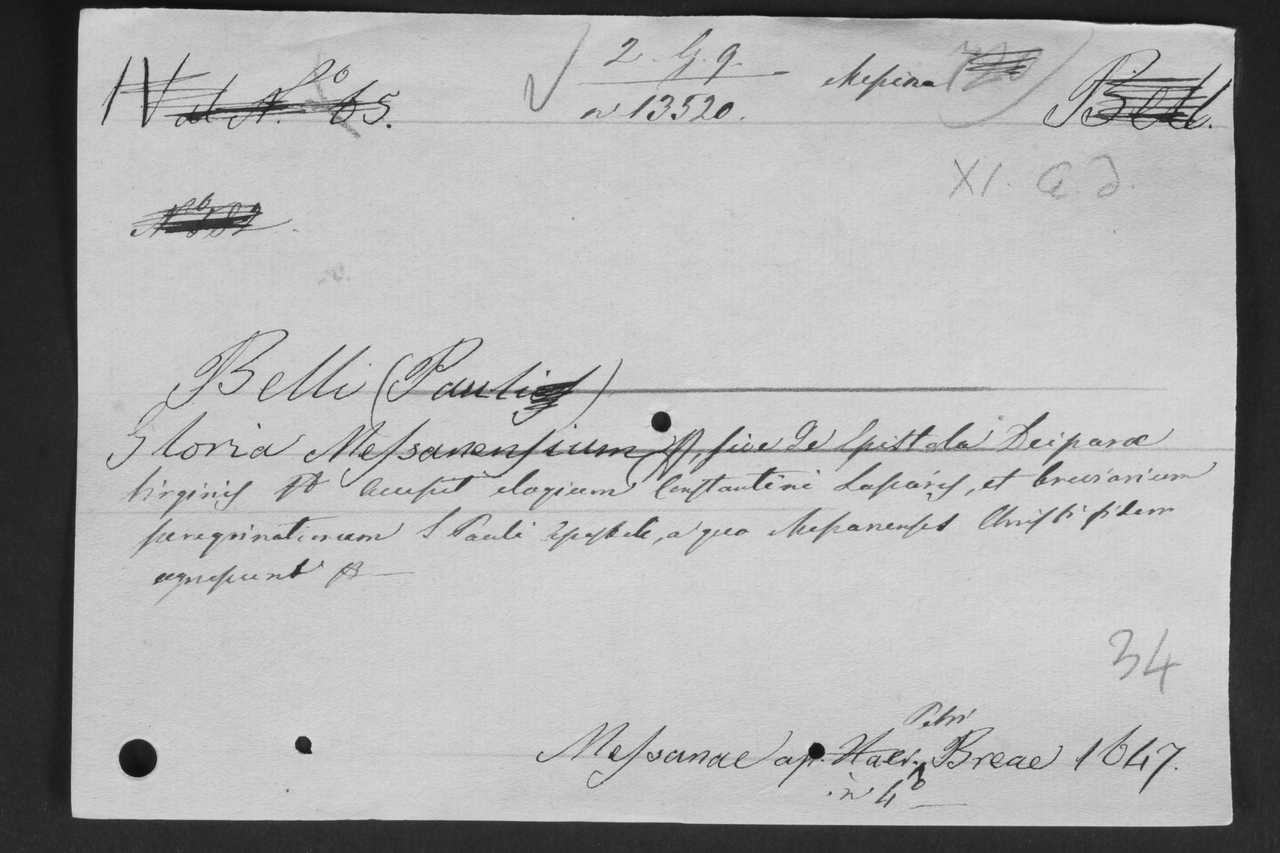 IV ad N.º 65.
2. G. g.
n 13520.
Messina
Belli.
XI. a. d.
Belli (Pauli)
Gloria Messanensium sive de Epistola Deiparæ
Virginis & Accessit elogium Constantini Lascaris, et breviarium
peregrinationum S Pauli Apostoli, a quo Messanenses Christi fidem
34
Messanae ap. Haer. Petri Breae 1647.
in 4º